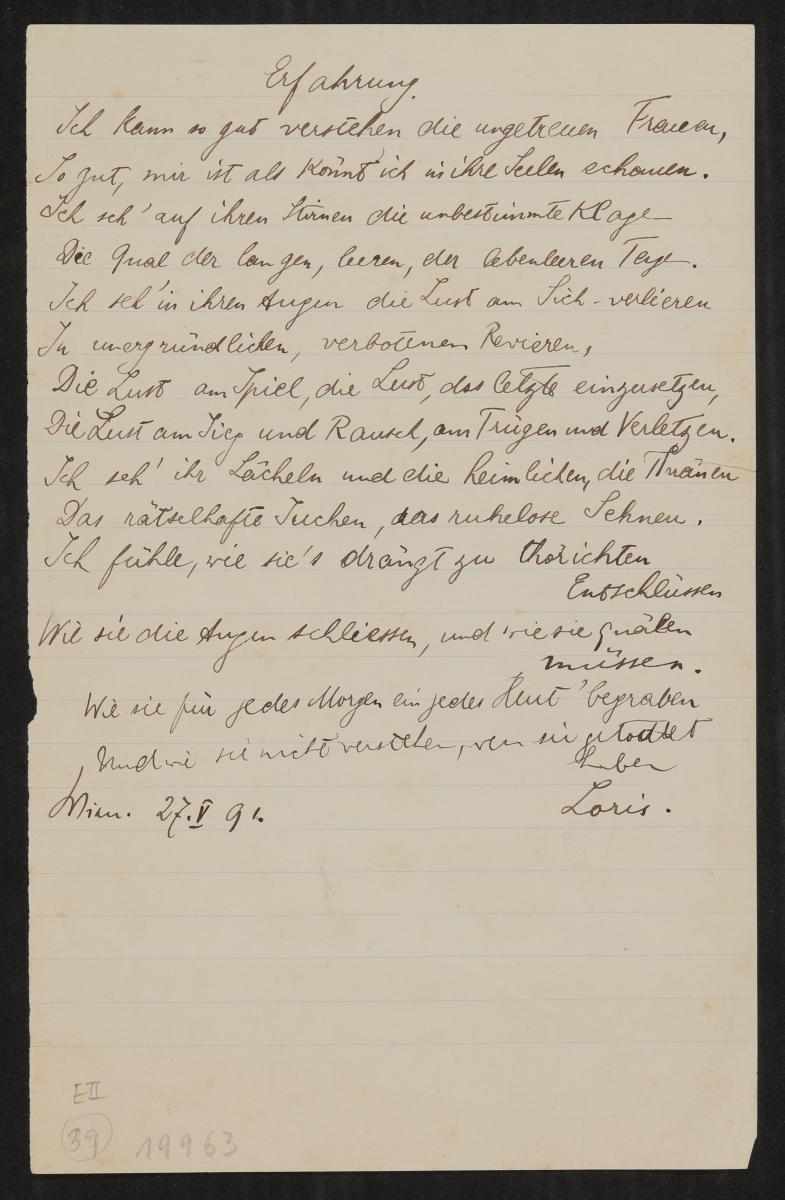 Erfahrung.
Ich kann so gut verstehen die ungetreuen Frauen,
So gut, mir ist als könnt' ich in ihre Seelen schauen.
Ich seh' auf ihren Stirnen die unbestimmte Klage
Die Qual der langen, leeren, der lebenleeren Tage.
Ich seh' in ihren Augen die Lust am Sich-verlieren
In unergründlichen, verbotenen Revieren,
Die Lust am Spiel, die Lust, das letzte einzusetzen,
Die Lust am Sieg und Rausch, am Trügen und Verletzen.
Ich seh' ihr Lächeln und die heimlichen, die Thränen
Das rätselhafte Suchen, das ruhelose Sehnen.
Ich fühle, wie sie's drängt zu thörichten
Entschlüssen
Wie sie die Augen schliessen, und wie sie quälen
müssen.
Wie sie für jedes Morgen ein jedes Heut' begraben
Und wie sie nicht verstehen, wen sie getödtet
haben
Wien. 27. V 91.
Loris.
EII
39 19963